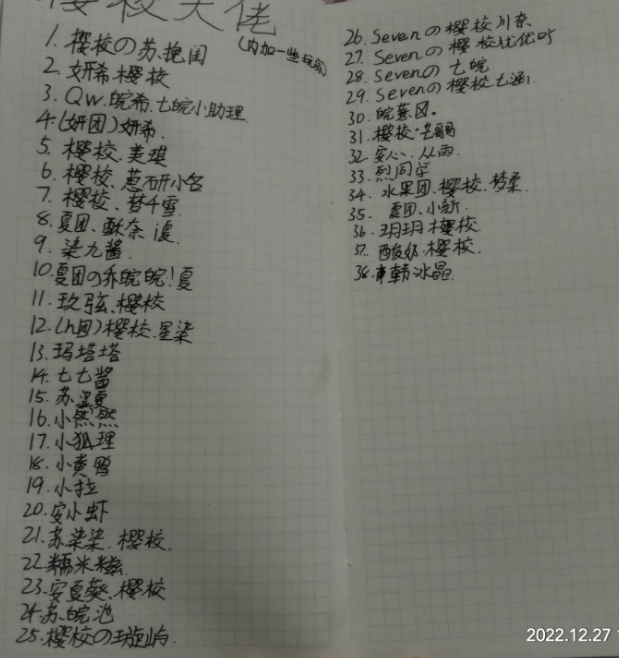 樱校大佬
(内加一些玩家)
1. 樱校の苏挽闺
2. 妍希樱校
3. Qw.皖希.七皖小助理
4.(妍团)妍希.
5. 樱校.美琪
6. 樱校、葱研小名
7. 樱校、梦千雪
8.夏团、酥奈 i夏
9. 染九酱
10.夏团の乔皖皖!夏
11. 玖弦.樱校
12.(h团)樱校.星染
13.玛塔塔
14.七七酱
15.苏夏
16.小然然
17.小狐理
18.小黄鸭
19.小拉
20.安小虾
21.苏染染.樱校.
22.糯米糍
23.安夏葵.樱校
24.苏皖池
25.樱校の璇屿.
26. Sevenの樱校川奈
27. Sevenの樱校优优吖
28. Sevenの七皖
29. Sevenの樱校七涵
30. 皖
31. 樱校
32. 安心、从雨.
33. 烈同学
34. 水果团.樱校.梦柔
35. 夏团.小新.
36. 玥玥樱校.
37. 酸奶.樱校.
38. 韩冰晶.
2022.12.27 1